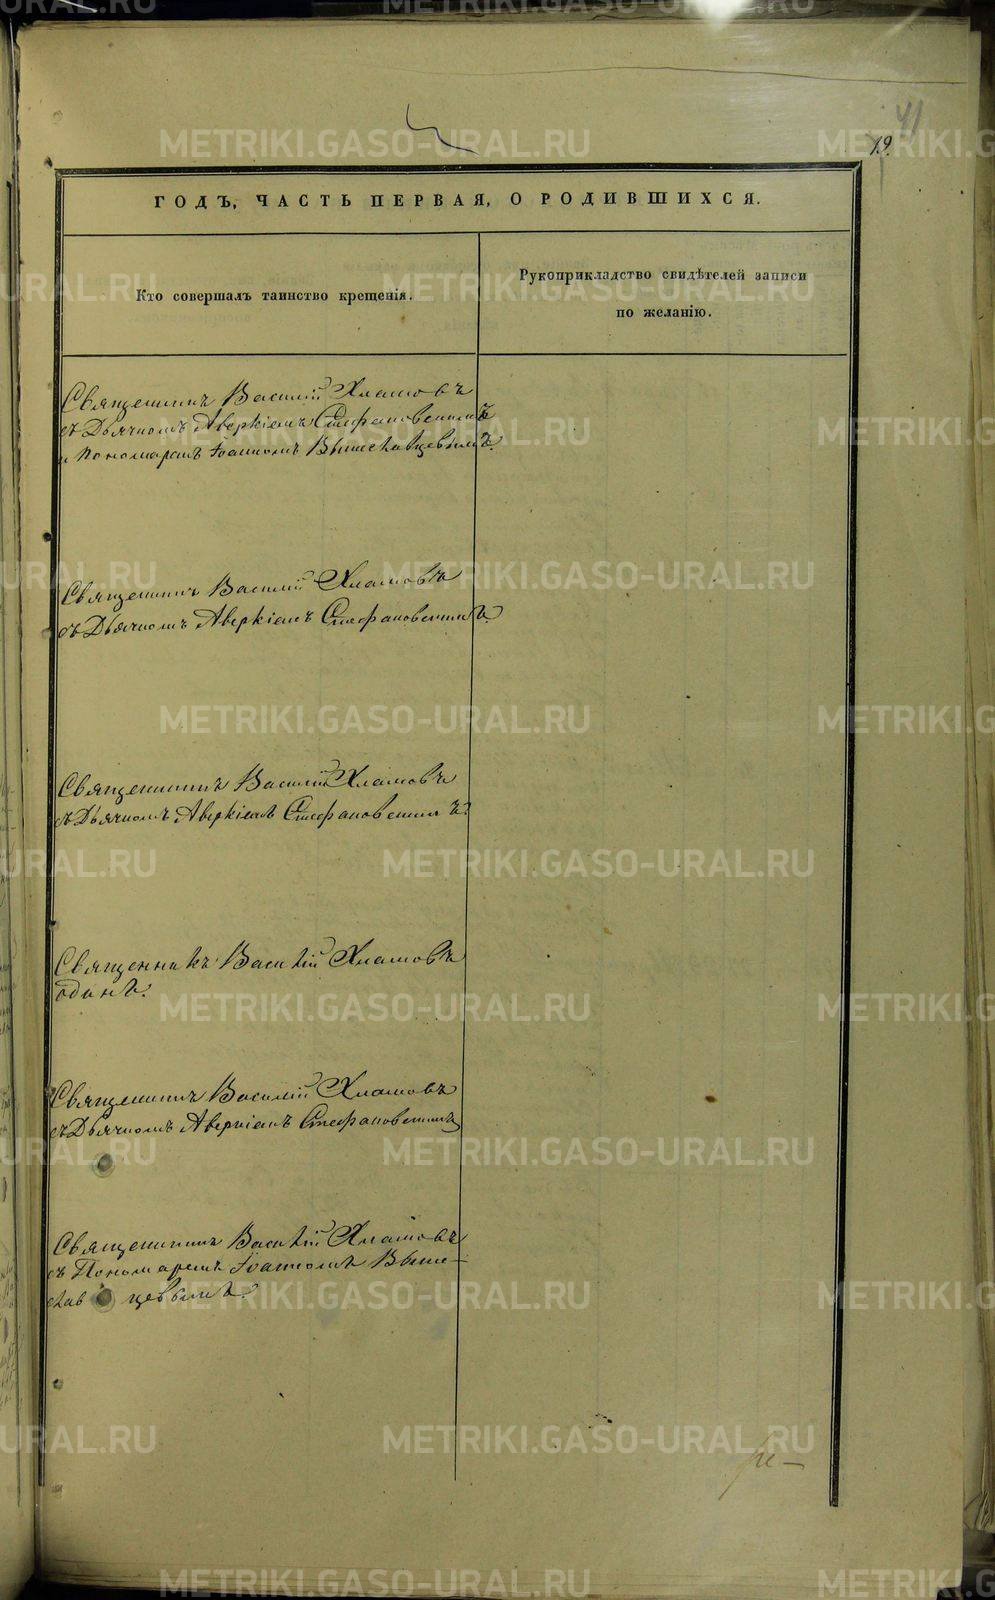 41
19.
ГОДЪ, ЧАСТЬ ПЕРВАЯ, О РОДИВШИХСЯ.
Кто совершалъ таинство крещенія.
Рукоприкладство свидѣтелей записи
по желанію.
Священникъ Василій Хламовъ
съ Дьячкомъ Аверкіемъ Стефановскимъ
и Пономаремъ Іоанномъ Вышеславцевымъ.
Священникъ Василій Хламовъ
съ Дьячкомъ Аверкіемъ Стефановскимъ.
Священникъ Василій Хламовъ
съ Дьячкомъ Аверкіемъ Стефановскимъ.
Священникъ Василій Хламовъ
одинъ.
Священникъ Василій Хламовъ
съ Дьячкомъ Аверкіемъ Стефановскимъ
Священникъ Василій Хламовъ
съ Пономаремъ Іоанномъ Выше-
славцевымъ.
METRIKI.GASO-URAL.RU